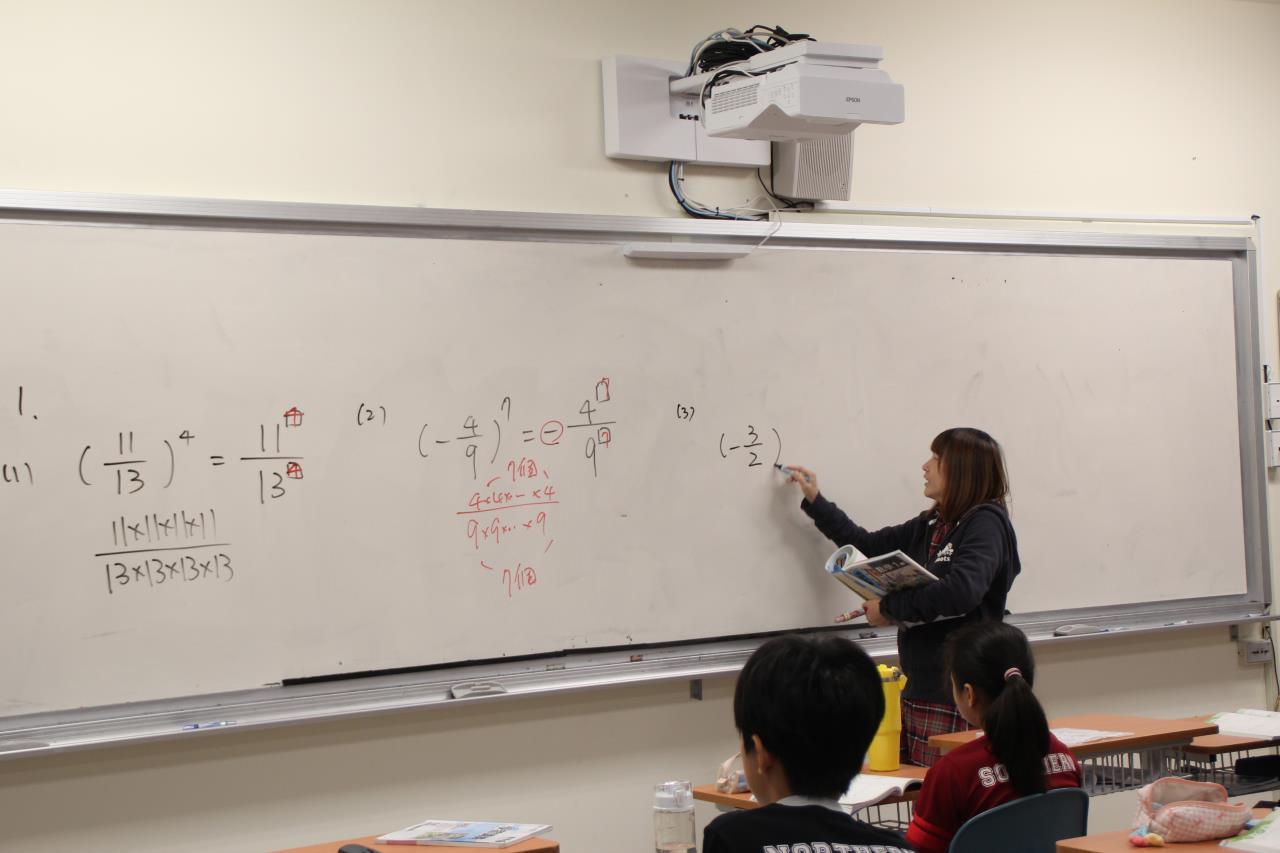 EPSON
1.
(1) (11/13)^4 = 11^4/13^4
11×11×11×11/13×13×13×13
(2) (-4/9)^7 = -4^□/9^7
7個
4×4×…×4/9×9×…×9
7個
(3) (-3/2)
NORTHERN